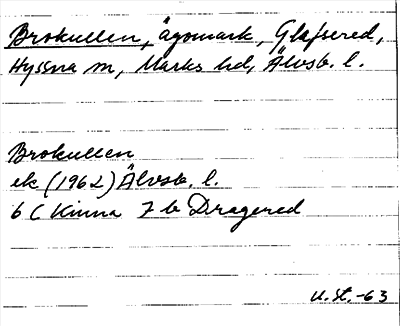 Brokullen, ägomark, Glafsered,
Hyssna sn, Marks hd, Älvsb. l.
Brokullen
ek (1962) Älvsb. l.
6 C Kinna 7 b Dragered
U. St. -63